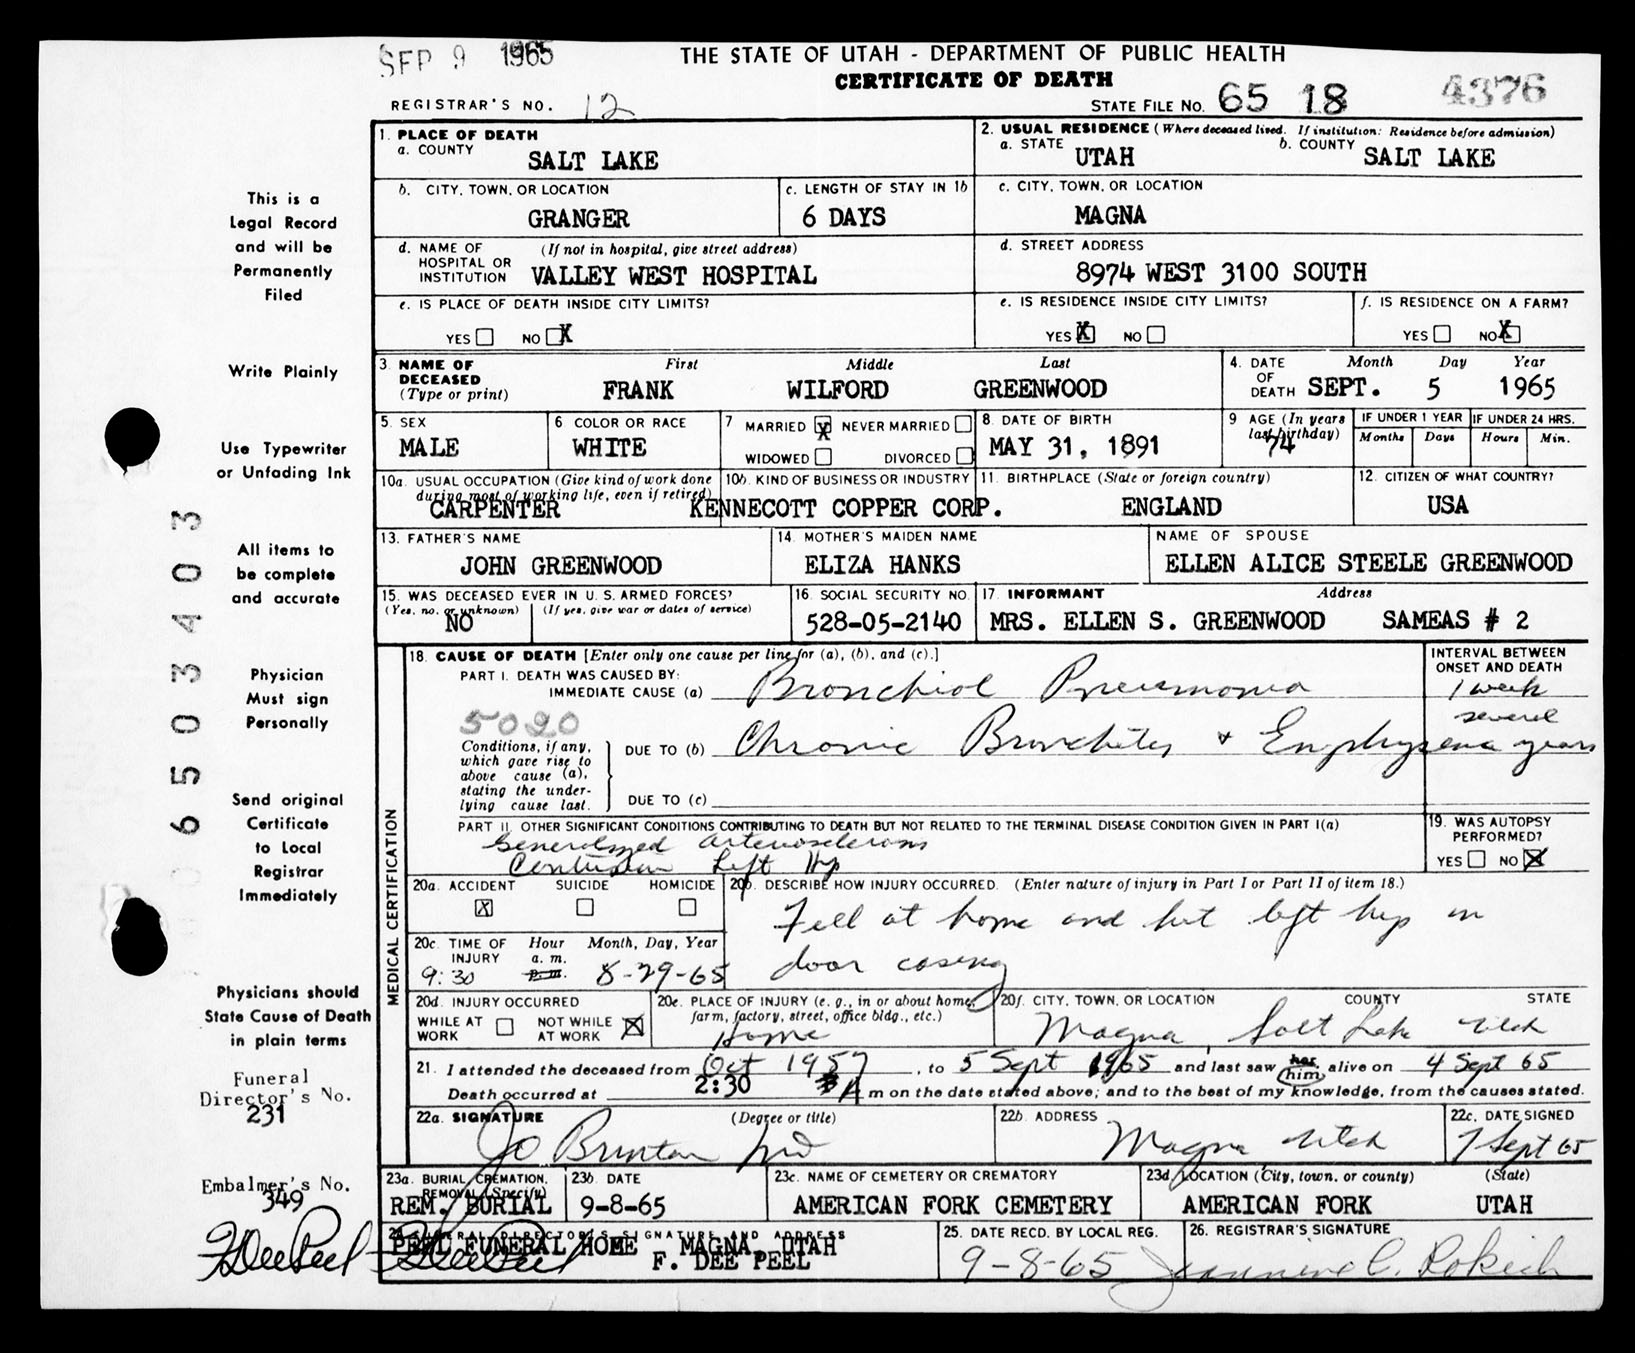 SEP 9 1965
THE STATE OF UTAH - DEPARTMENT OF PUBLIC HEALTH
CERTIFICATE OF DEATH
REGISTRAR'S NO. 12
STATE FILE NO. 65 18 4376
This is a
Legal Record
and will be
Permanently
Filed
Write Plainly
Use Typewriter
or Unfading Ink
All items to
be complete
and accurate
Physician
Must sign
Personally
Send original
Certificate
to Local
Registrar
Immediately
Physicians should
State Cause of Death
in plain terms
Funeral
Director's No.
231
Embalmer's No.
349
0 6 5 0 3 4 0 3
1. PLACE OF DEATH
a. COUNTY SALT LAKE
2. USUAL RESIDENCE (Where deceased lived. If institution: Residence before admission)
a. STATE UTAH b. COUNTY SALT LAKE
b. CITY, TOWN, OR LOCATION GRANGER
c. LENGTH OF STAY IN 1b 6 DAYS
c. CITY, TOWN, OR LOCATION MAGNA
d. NAME OF HOSPITAL OR INSTITUTION (If not in hospital, give street address) VALLEY WEST HOSPITAL
d. STREET ADDRESS 8974 WEST 3100 SOUTH
e. IS PLACE OF DEATH INSIDE CITY LIMITS?
YES NO X
e. IS RESIDENCE INSIDE CITY LIMITS?
YES X NO
f. IS RESIDENCE ON A FARM?
YES NO X
3. NAME OF DECEASED (Type or print)
First Middle Last
FRANK WILFORD GREENWOOD
4. DATE OF DEATH Month Day Year
SEPT. 5 1965
5. SEX MALE
6 COLOR OR RACE WHITE
7 MARRIED X NEVER MARRIED
WIDOWED DIVORCED
8. DATE OF BIRTH MAY 31, 1891
9 AGE (In years last birthday) 74
IF UNDER 1 YEAR Months Days
IF UNDER 24 HRS. Hours Min.
10a. USUAL OCCUPATION (Give kind of work done during most of working life, even if retired) CARPENTER
10b. KIND OF BUSINESS OR INDUSTRY KENNECOTT COPPER CORP.
11. BIRTHPLACE (State or foreign country) ENGLAND
12. CITIZEN OF WHAT COUNTRY? USA
13. FATHER'S NAME JOHN GREENWOOD
14. MOTHER'S MAIDEN NAME ELIZA HANKS
NAME OF SPOUSE ELLEN ALICE STEELE GREENWOOD
15. WAS DECEASED EVER IN U. S. ARMED FORCES?
(Yes, no, or unknown) (If yes, give war or dates of service)
NO
16. SOCIAL SECURITY NO. 528-05-2140
17. INFORMANT Address
MRS. ELLEN S. GREENWOOD SAMEAS # 2
MEDICAL CERTIFICATION
18. CAUSE OF DEATH [Enter only one cause per line for (a), (b), and (c).]
INTERVAL BETWEEN ONSET AND DEATH
PART I. DEATH WAS CAUSED BY:
IMMEDIATE CAUSE (a) Bronchial Pneumonia 1 week
5020
Conditions, if any, which gave rise to above cause (a), stating the underlying cause last.
DUE TO (b) Chronic Bronchitis + Emphysema several years
DUE TO (c)
PART II. OTHER SIGNIFICANT CONDITIONS CONTRIBUTING TO DEATH BUT NOT RELATED TO THE TERMINAL DISEASE CONDITION GIVEN IN PART I(a)
Generalized arteriosclerosis
Contusion Left Hip
19. WAS AUTOPSY PERFORMED?
YES NO X
20a. ACCIDENT SUICIDE HOMICIDE
X
20b. DESCRIBE HOW INJURY OCCURRED. (Enter nature of injury in Part I or Part II of item 18.)
Fell at home and hit left hip on
door casing
20c. TIME OF INJURY Hour a. m. p. m. Month, Day, Year
9:30 8-29-65
20d. INJURY OCCURRED
WHILE AT WORK NOT WHILE AT WORK X
20e. PLACE OF INJURY (e. g., in or about home, farm, factory, street, office bldg., etc.)
Home
20f. CITY, TOWN, OR LOCATION COUNTY STATE
Magna, Salt Lake Utah
21. I attended the deceased from Oct 1957, to 5 Sept 1965 and last saw her him alive on 4 Sept 65
Death occurred at 2:30 A m on the date stated above; and to the best of my knowledge, from the causes stated.
22a. SIGNATURE (Degree or title)
Jo Brunton MD
22b. ADDRESS
Magna Utah
22c. DATE SIGNED
7 Sept 65
23a. BURIAL, CREMATION, REMOVAL (Specify) REM. BURIAL
23b. DATE 9-8-65
23c. NAME OF CEMETERY OR CREMATORY AMERICAN FORK CEMETERY
23d. LOCATION (City, town, or county) (State)
AMERICAN FORK UTAH
24. FUNERAL DIRECTOR'S SIGNATURE AND ADDRESS
PEEL FUNERAL HOME MAGNA, UTAH
F. DEE PEEL
F Dee Peel - F Dee Peel
25. DATE RECD. BY LOCAL REG.
9-8-65
26. REGISTRAR'S SIGNATURE
Jeannine C. Rokich